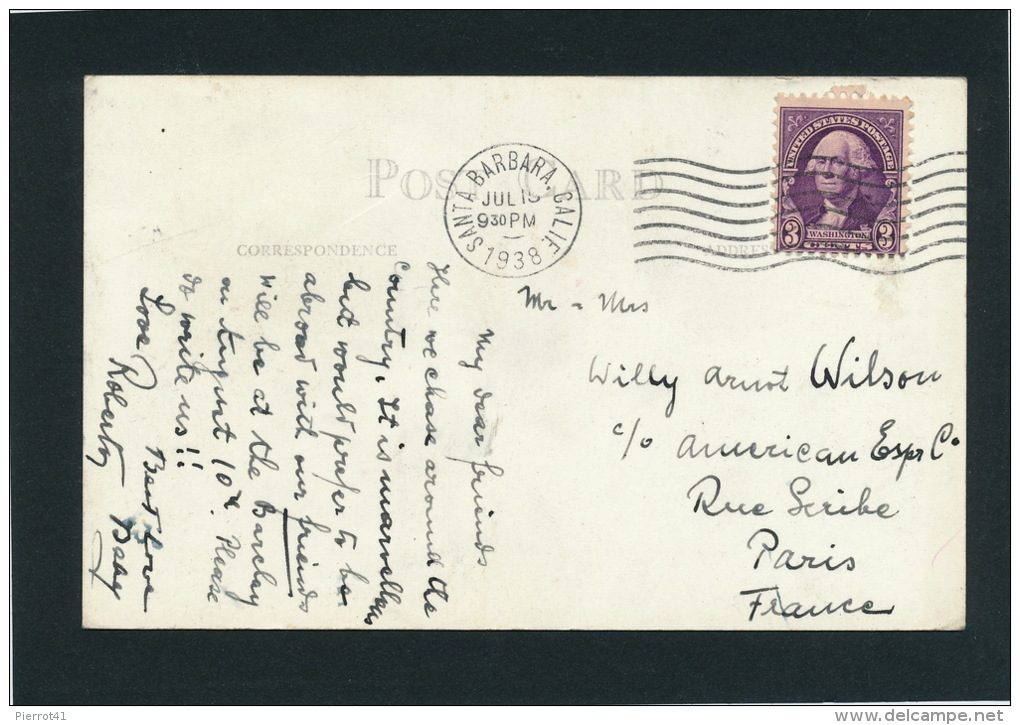 POST CARD
CORRESPONDENCE
ADDRESS
SANTA BARBARA, CALIF.
JUL 15
9 30 PM
1938
UNITED STATES POSTAGE
3 WASHINGTON 3
CENTS
My dear friends
Here we chase around the
country. It is marvellous
but would prefer to be
abroad with our friends
Will be at the Barclay
on August 10th. Please
do write us!!
Best Love
Love,
Mr - Mrs
Willy Arnot Wilson
c/o American Expr Co.
Rue Scribe
Paris
France
Pierrot41
www.delcampe.net